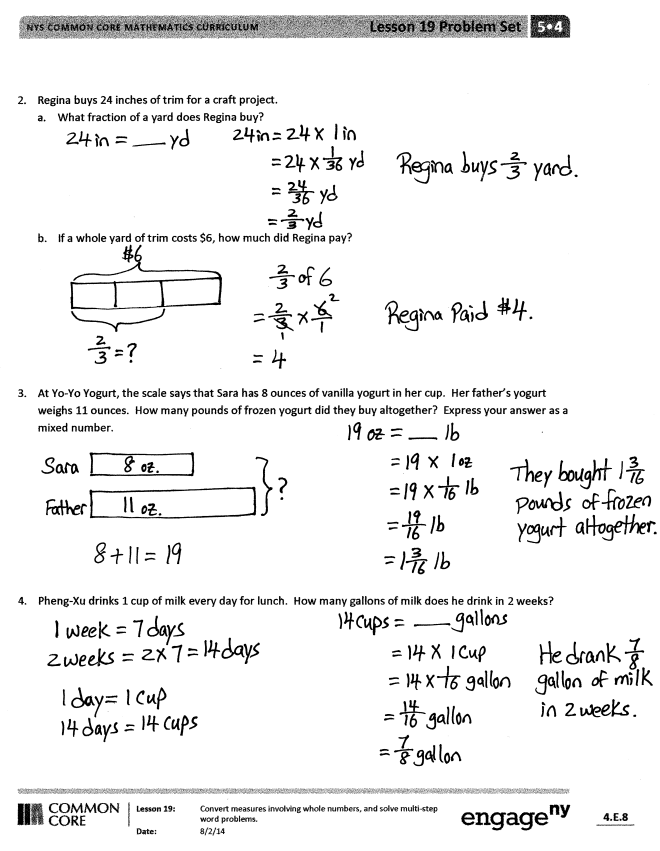 NYS COMMON CORE MATHEMATICS CURRICULUM Lesson 19 Problem Set 5•4
2. Regina buys 24 inches of trim for a craft project.
a. What fraction of a yard does Regina buy?
24 in = ___ yd
24in = 24 X 1 in
= 24 X 1/36 yd
= 24/36 yd
= 2/3 yd
Regina buys 2/3 yard.
b. If a whole yard of trim costs $6, how much did Regina pay?
$6
2/3 = ?
2/3 of 6
= 2/3 x 6/1
1 2
= 4
Regina Paid $4.
3. At Yo-Yo Yogurt, the scale says that Sara has 8 ounces of vanilla yogurt in her cup. Her father's yogurt
weighs 11 ounces. How many pounds of frozen yogurt did they buy altogether? Express your answer as a
mixed number.
Sara 8 oz.
Father 11 oz.
?
8 + 11 = 19
19 oz = ___ lb
= 19 X 1 oz
= 19 X 1/16 lb
= 19/16 lb
= 1 3/16 lb
They bought 1 3/16
pounds of frozen
yogurt altogether.
4. Pheng-Xu drinks 1 cup of milk every day for lunch. How many gallons of milk does he drink in 2 weeks?
1 week = 7 days
2 weeks = 2 x 7 = 14 days
1 day = 1 cup
14 days = 14 cups
14 cups = ___ gallons
= 14 X 1 cup
= 14 X 1/16 gallon
= 14/16 gallon
= 7/8 gallon
He drank 7/8
gallon of milk
in 2 weeks.
COMMON
CORE
Lesson 19: Convert measures involving whole numbers, and solve multi-step
word problems.
Date: 8/2/14
engageny
4.E.8